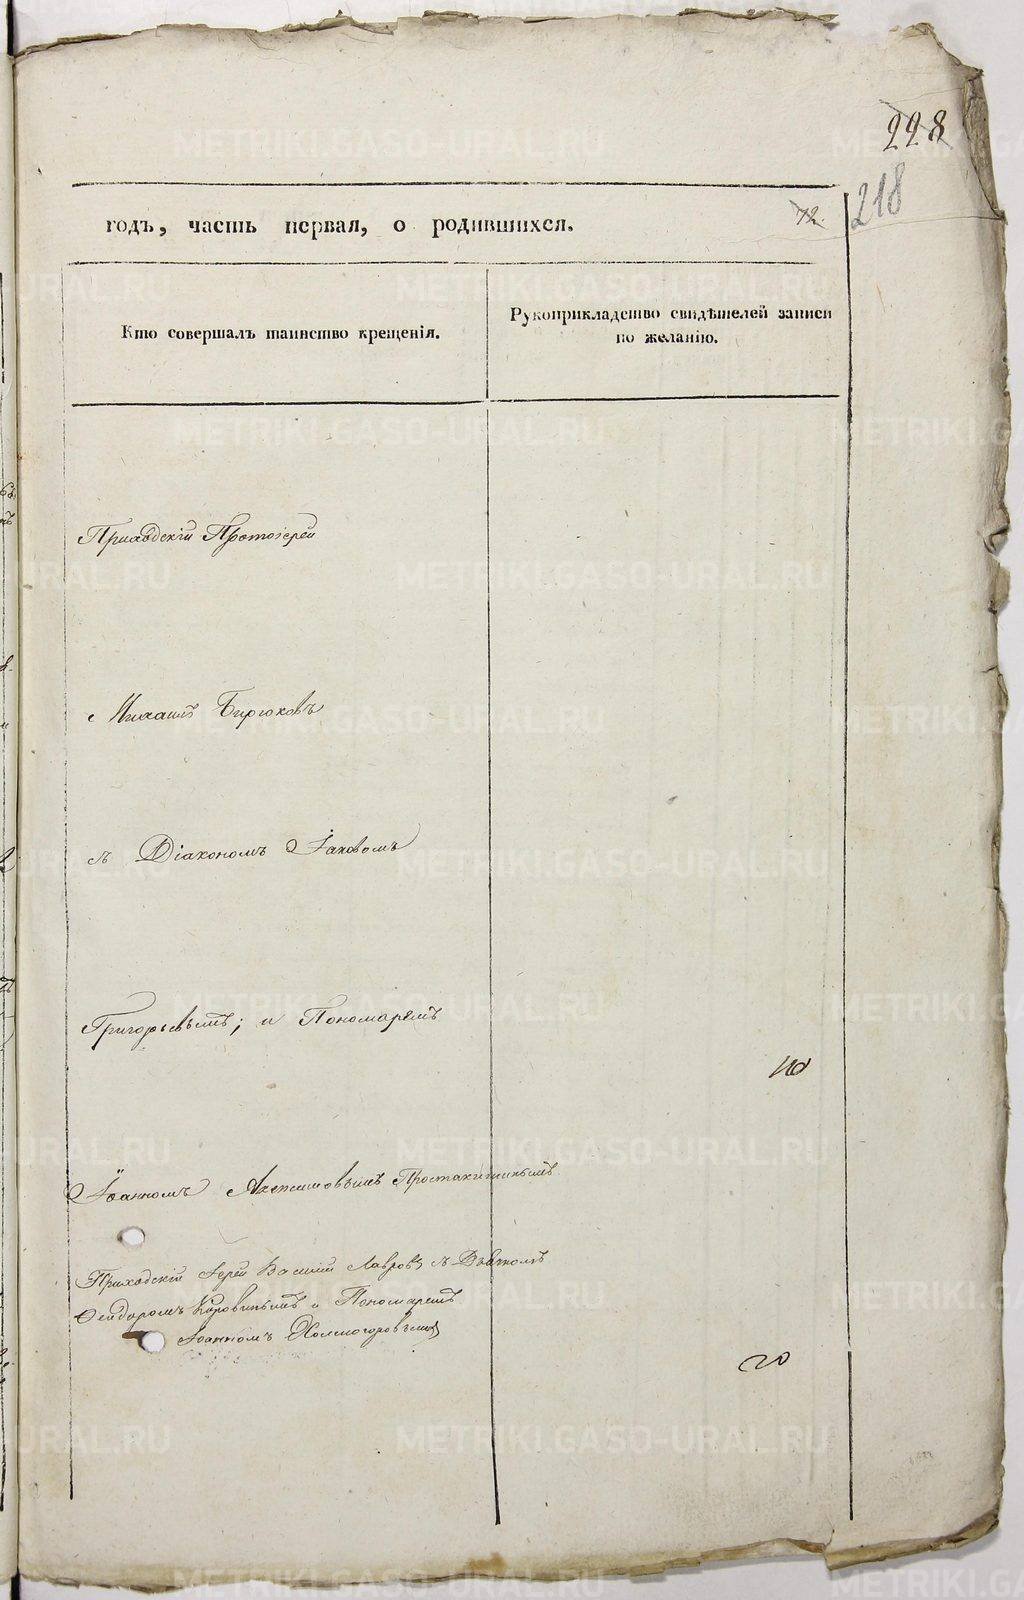 228
218
годъ, часть первая, о родившихся.
72.
Кто совершалъ таинство крещенія.
Рукоприкладство свидѣтелей записи
по желанію.
Приходскій Протоіерей
Михаилъ Бирюковъ
съ Діакономъ Іаковомъ
Григорьевымъ; и Пономаремъ
Іоанномъ
Приходскій Іерей Василій Лавровъ съ Дьячкомъ
Феодоромъ Коровинымъ и Пономаремъ
Іоанномъ Холмогоровымъ
20
METRIKI.GASO-URAL.RU